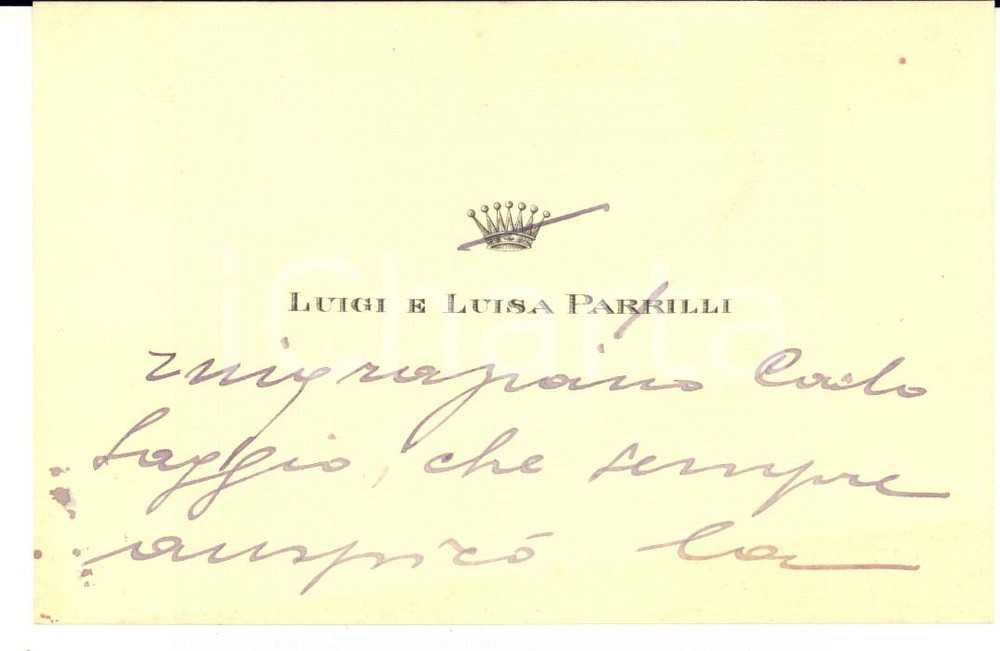 iCharta
LUIGI E LUISA PARRILLI
ringraziano Carlo
Saggio, che sempre
auspicò la